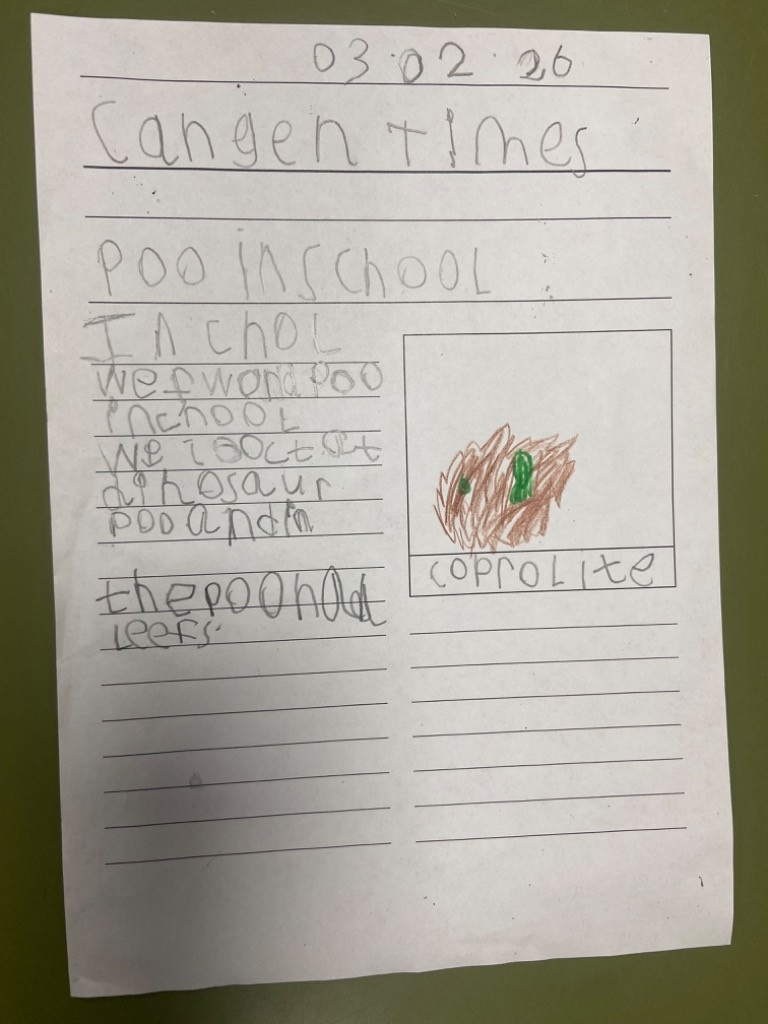 03.02.26
Cangen times
Poo inschool
In chol
wefwond Poo
inchool
We looct at
dihosaur
poo and in
the poo had
leefs.
coprolite